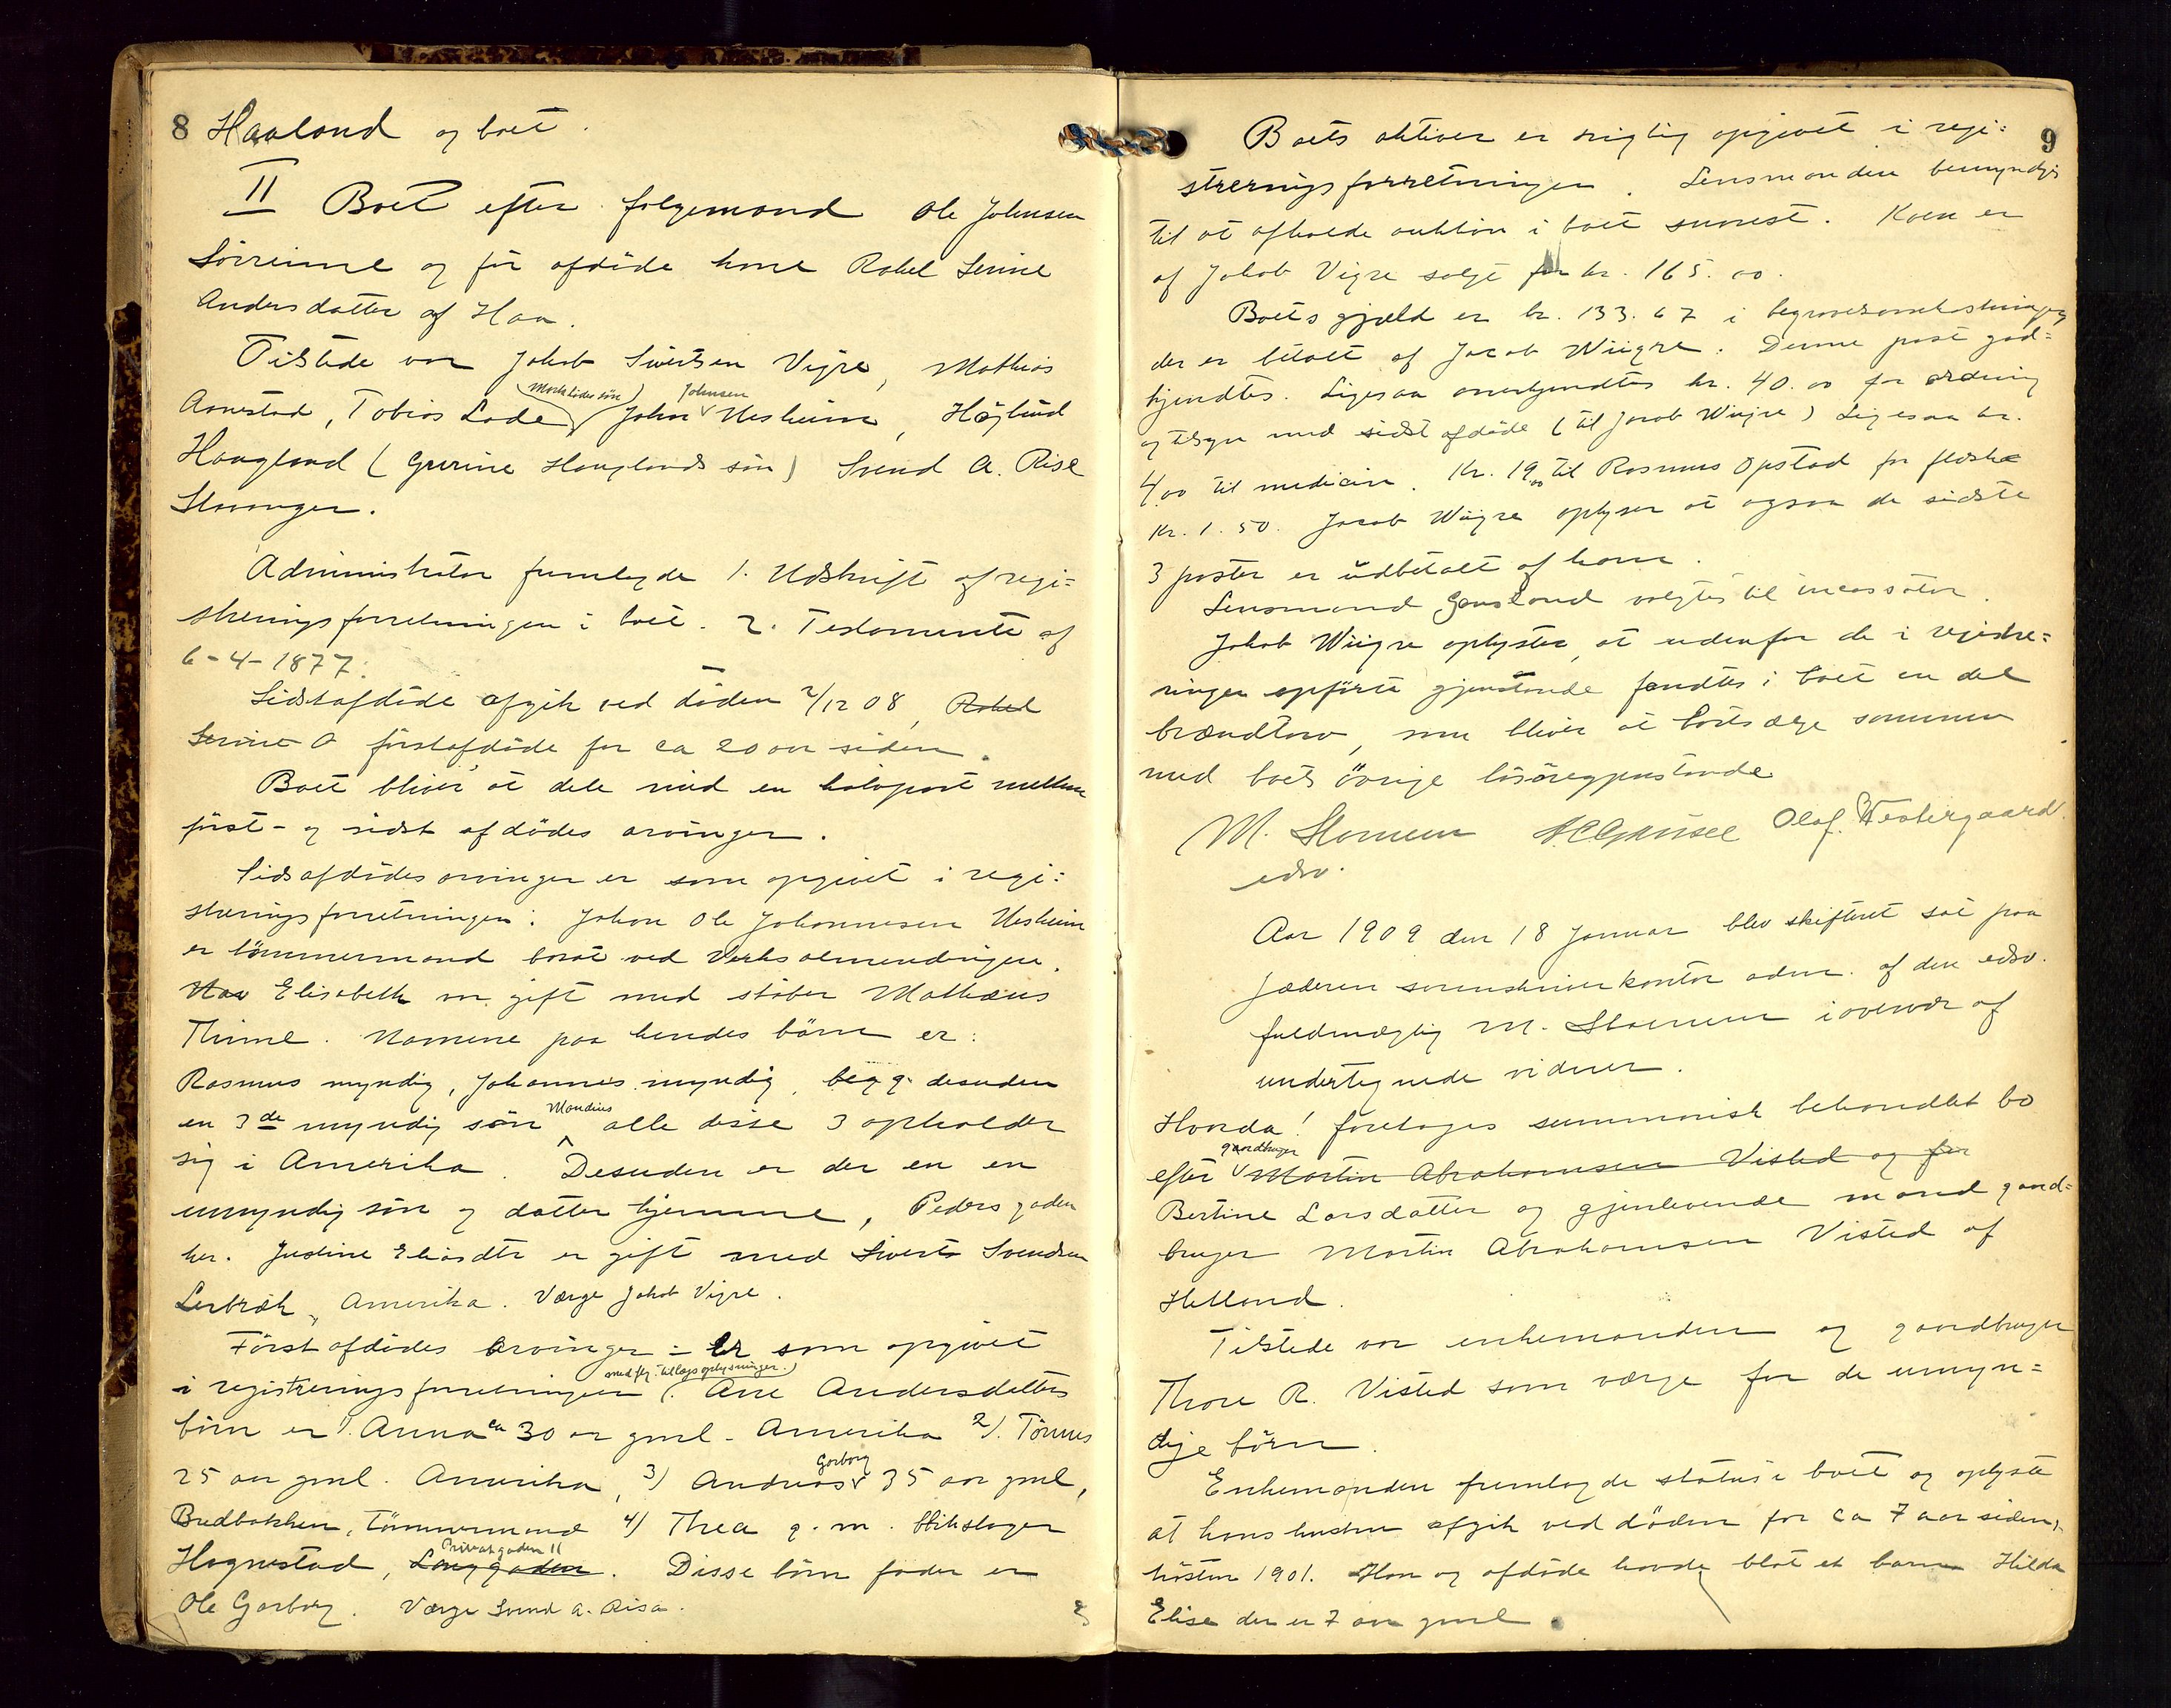 8 Haaland og boet.
II Boet efter folgemand Ole Johnsen
Sörreime og för afdöde kone Rakel Serine
Andersdatter af Haa.
Tilstede var Jakob Sivertsen Vigre, Mathias
Aanestad, Tobias Lode, (Marta Lodes sön) John Johnsen Nesheim, Höglund
Haugland (Gurine Hauglands sön) Svend A. Rise
Stavanger.
Administrator fremlagde 1. Udskrift af regi=
streringsforretningen i boet. 2. Testamente af
6-4-1877.
Sidstafdöde afgik ved döden 2/12 08, Rakel
Serine O förstafdöde for ca 20 aar siden.
Boet bliver at dele med en halvpart mellem
först- og sidst afdödes arvinger.
Sidstafdödes arvinger er som opgivet i regi=
streringsforretningen: Johan Ole Johannesen Nesheim
er tömmermand bosat ved Verksalmendingen.
Elisabeth er gift med stöber Mathæus
Thime. Navnene paa hendes börn er:
Rasmus myndig, Johannes myndig, begge desuden
en 3de myndig sön Mandius alle disse 3 opholder
sig i Amerika. Desuden er der en en
umyndig sön og datter hjemme, Pedersgaden
her. Justine Eliasdtr er gift med Sivert Svendsen
Lerbræk, Amerika. Værge Jakob Vigre.
Först afdödes arvinger er som opgivet
i registreringsforretningen (med flg. tillægsoplysninger.) Ane Andersdatters
börn er 1). Anna ca 30 aar gml. Amerika 2). Tönnes
25 aar gml. Amerika, 3) Andreas Garborg 35 aar gml,
Bredbakken, tömmermand 4) Thea g. m. blikslager
Hognestad, Langgaden Privatgaden 11. Disse börns fader er
Ole Garborg. Værge Svend A. Risa.
9
Boets aktiver er rigtig opgivet i regi=
streringsforretningen. Lensmanden bemyndiges
til at afholde auktion i boet snarest. Koen er
af Jakob Vigre solgt for kr. 165.00.
Boets gjæld er kr. 133.67 i begravelsesomkostninger
der er betalt af Jacob Wiigre. Denne post god=
kjendtes. Ligesaa anerkjendtes kr. 40.00 for ordning
og tilsyn med sidst afdöde (til Jacob Wiigre) Ligesaa kr.
4.00 til medicin. Kr. 19.00 til Rasmus Opstad for flesk
Kr. 1.50. Jacob Wiigre oplyser at ogsaa de sidste
3 poster er udbetalt af ham.
Lensmand Gausland valgtes til incassator.
Jakob Wiigre oplyste, at udenfor de i registre=
ringen opförte gjenstande fandtes i boet en del
brændtorv, som bliver at bortsælge sammen
med boets övrige lösöregjenstande
M. Stornem Olaf Westergaard.
edsv.
Aar 1909 den 18 Januar blev skifteret sat paa
Jæderen sorenskriverkontor adm. af den edsv.
fuldmægtig M. Stornem i overvær af
undertegnede vidner.
Hvorda! foretoges summarisk behandlet bo
efter gaardbruger Martin Abrahamsen Visted og for
Bertine Larsdatter og gjenlevende mand gaard=
bruger Martin Abrahamsen Visted af
Hetland.
Tilstede var enkemanden og gaardbruger
Thore R. Visted som værge for de umyn=
dige börn.
Enkemanden fremlagde status i boet og oplyste
at hans hustru afgik ved döden for ca 7 aar siden,
hösten 1901. Han og afdöde havde blot et barn Hilda
Elise der er 7 aar gml.